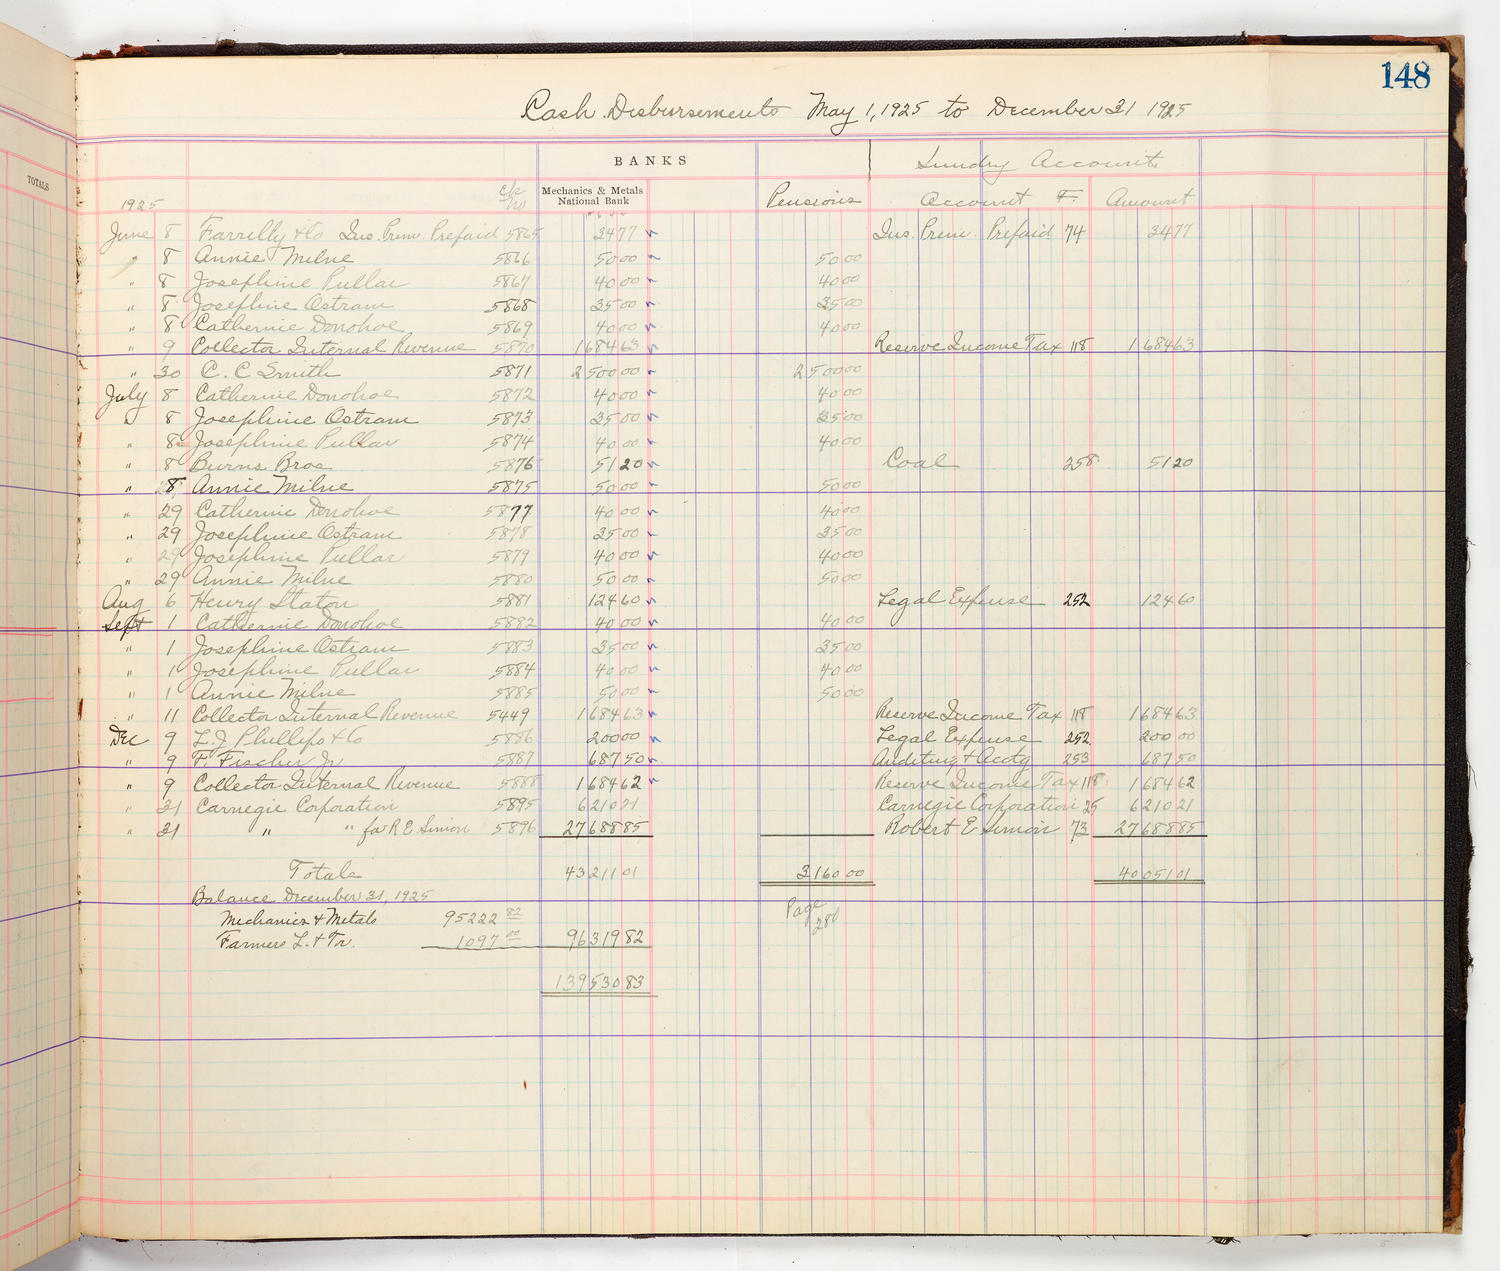 TOTALS
148
Cash Disbursements May 1, 1925 to December 31 1925
BANKS Sundry Accounts
1925 ck no Mechanics & Metals National Bank Pensions Account F. Amount
June 8 Farrelly & Co Ins. Prem. Prepaid 5865 3477 Ins. Prem. Prepaid 74 3477
" 8 Annie Milne 5866 5000 5000
" 8 Josephine Pullar 5867 4000 4000
" 8 Josephine Ostram 5868 3500 3500
" 8 Catherine Donohoe 5869 4000 4000
" 9 Collector Internal Revenue 5870 168463 Reserve Income Tax 118 168463
" 30 C. C Smith 5871 250000 250000
July 8 Catherine Donohoe 5872 4000 4000
" 8 Josephine Ostram 5873 3500 3500
" 8 Josephine Pullar 5874 4000 4000
" 8 Burns Bros 5876 5120 Coal 258 5120
" 8 Annie Milne 5875 5000 5000
" 29 Catherine Donohoe 5877 4000 4000
" 29 Josephine Ostram 5878 3500 3500
" 29 Josephine Pullar 5879 4000 4000
" 29 Annie Milne 5880 5000 5000
Aug 6 Henry Staton 5881 12460 Legal Expense 252 12460
Sept 1 Catherine Donohoe 5882 4000 4000
" 1 Josephine Ostram 5883 3500 3500
" 1 Josephine Pullar 5884 4000 4000
" 1 Annie Milne 5885 5000 5000
" 11 Collector Internal Revenue 5449 168463 Reserve Income Tax 118 168463
Dec 9 L. J Phillips & Co 5886 20000 Legal Expense 252 20000
" 9 F. Fischer Jr 5887 68750 Auditing & Acctg 253 68750
" 9 Collector Internal Revenue 5888 168462 Reserve Income Tax 118 168462
" 31 Carnegie Corporation 5895 621021 Carnegie Corporation 25 621021
" 31 " " for R E Simon 5896 2768885 Robert E Simon 73 2768885
Totals 4321101 316000 4005101
Balance December 31, 1925
Page 286
Mechanics & Metals 95222 82
Farmers L. & Tr. 1097 00 9631982
13953083